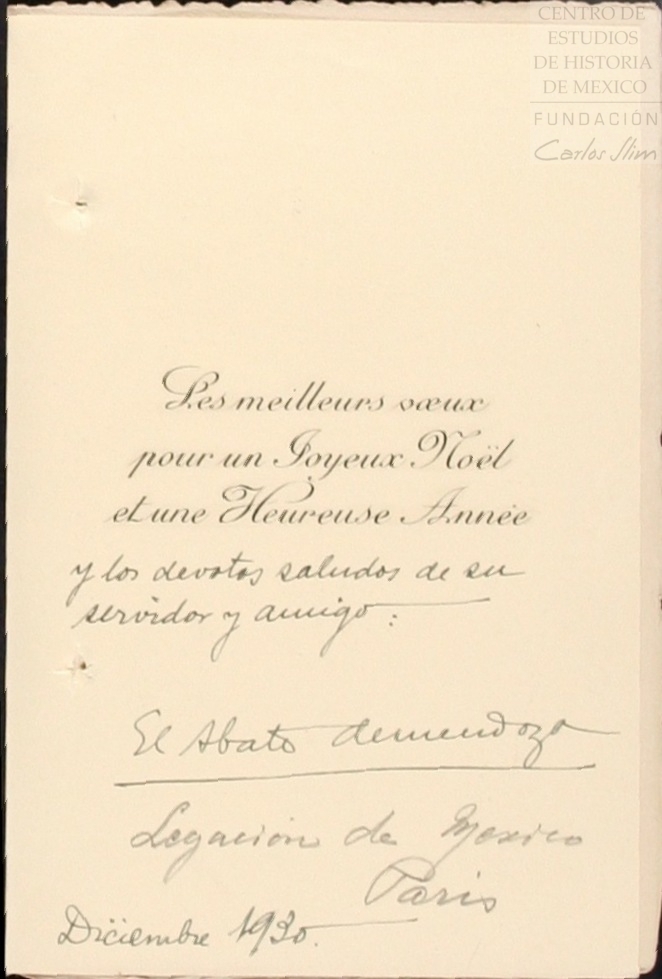 CENTRO DE
ESTUDIOS
DE HISTORIA
DE MEXICO
FUNDACIÓN
Carlos Slim
Les meilleurs vœux
pour un Joyeux Noël
et une Heureuse Année
y los devotos saludos de su
servidor y amigo:
El Abate demendoza
Legación de Mexico
Paris
Diciembre 1930.